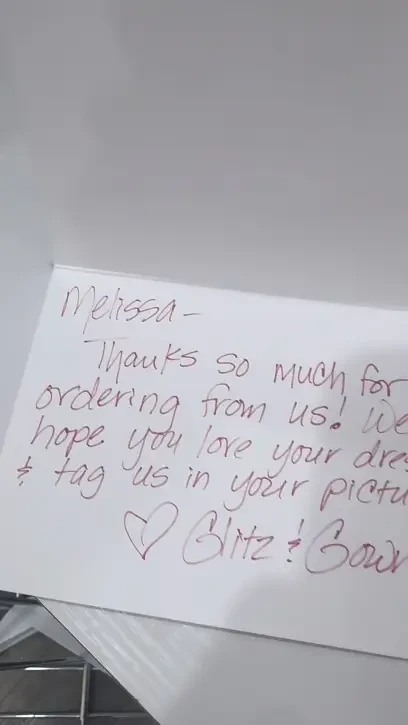 Melissa-
Thanks so much for
ordering from us! We
hope you love your dre
& tag us in your pictu
♡ Glitz & Gown